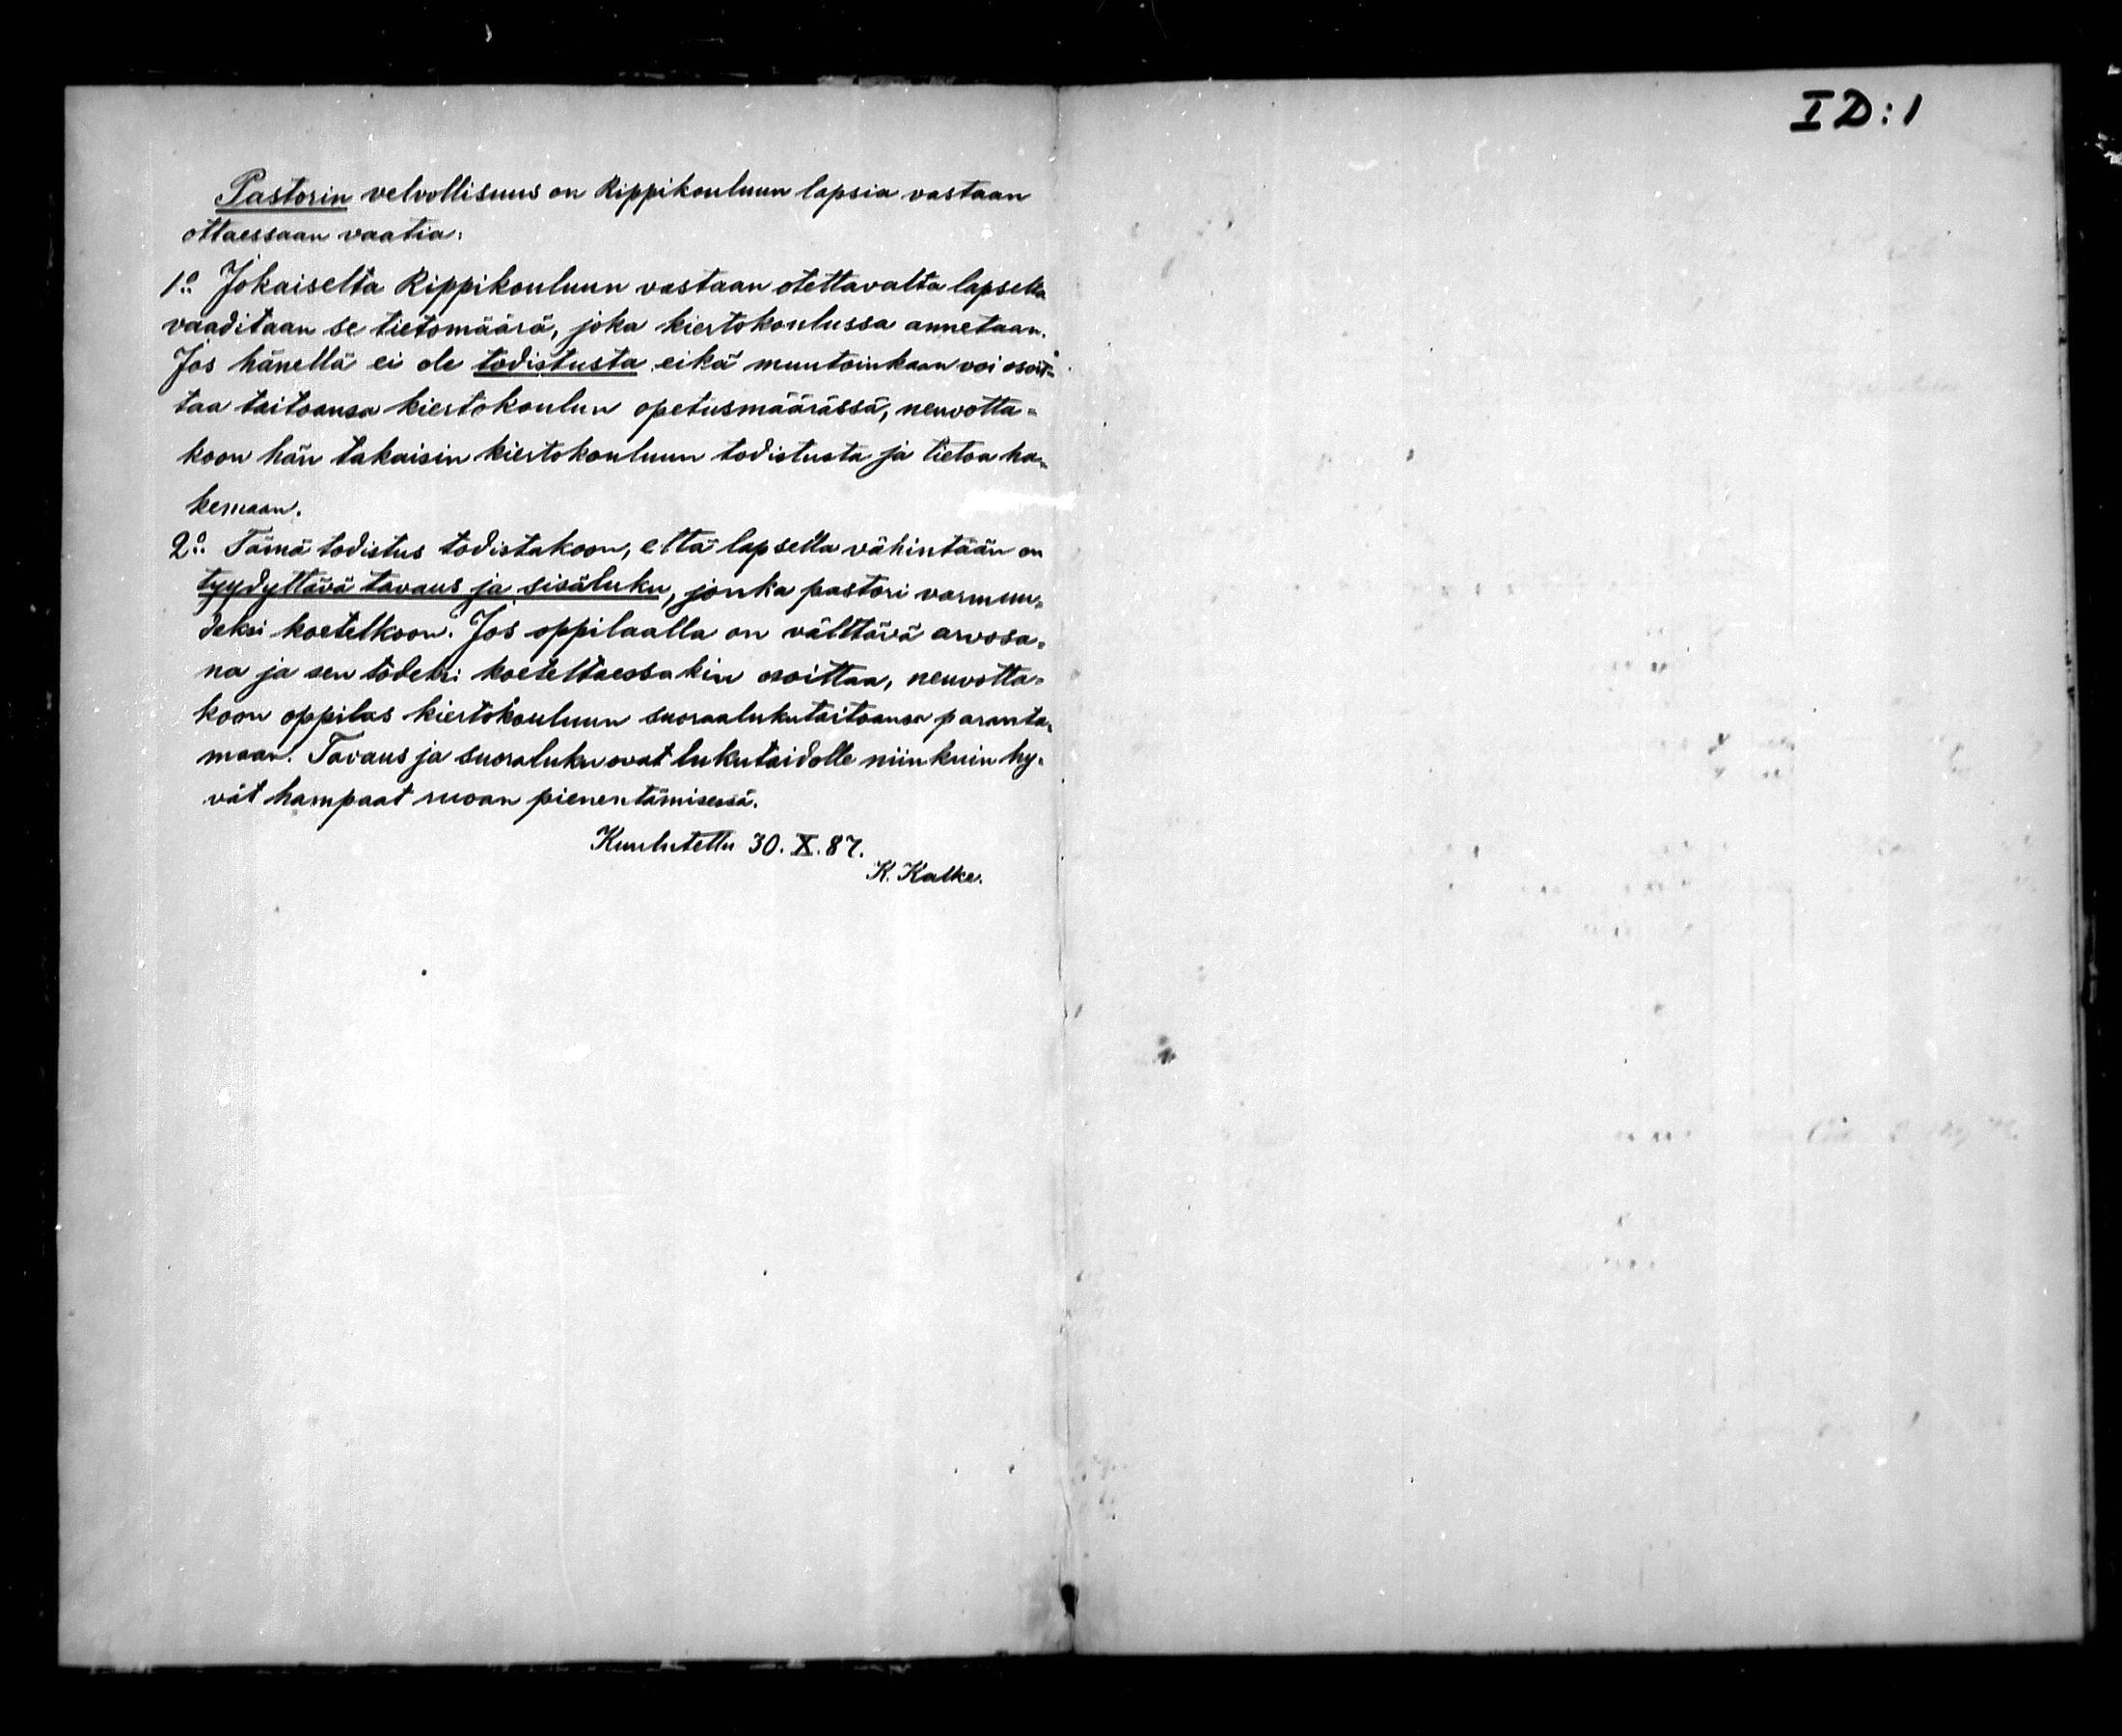 Pastorin velvollisuus on Rippikouluun lapsia vastaan
ottaessaan vaatia:
1:o Jokaiselta Rippikouluun vastaan otettavalta lapselta
vaaditaan se tietomäärä, joka kiertokoulussa annetaan.
Jos hänellä ei ole todistusta eikä muutoinkaan voi osoit=
taa taitoansa kiertokoulun opetusmäärässä, neuvotta=
koon hän takaisin kiertokouluun todistusta ja tietoa ha=
kemaan.
2:o Tämä todistus todistakoon, että lapsella vähintään on
tyydyttävä tavaus ja sisäluku, jonka pastori varmuu=
deksi koetelkoon. Jos oppilaalla on välttävä arvosa=
na ja sen todeksi koeteltaessakin osoittaa, neuvotta=
koon oppilas kiertokouluun suoraalukutaitoansa paranta=
maan. Tavaus ja suoraluku ovat lukutaidolle niinkuin hy=
vät hampaat ruoan pienentämisessä.
Kuulutettu 30. X. 87.
K. Kalke.
I D:1